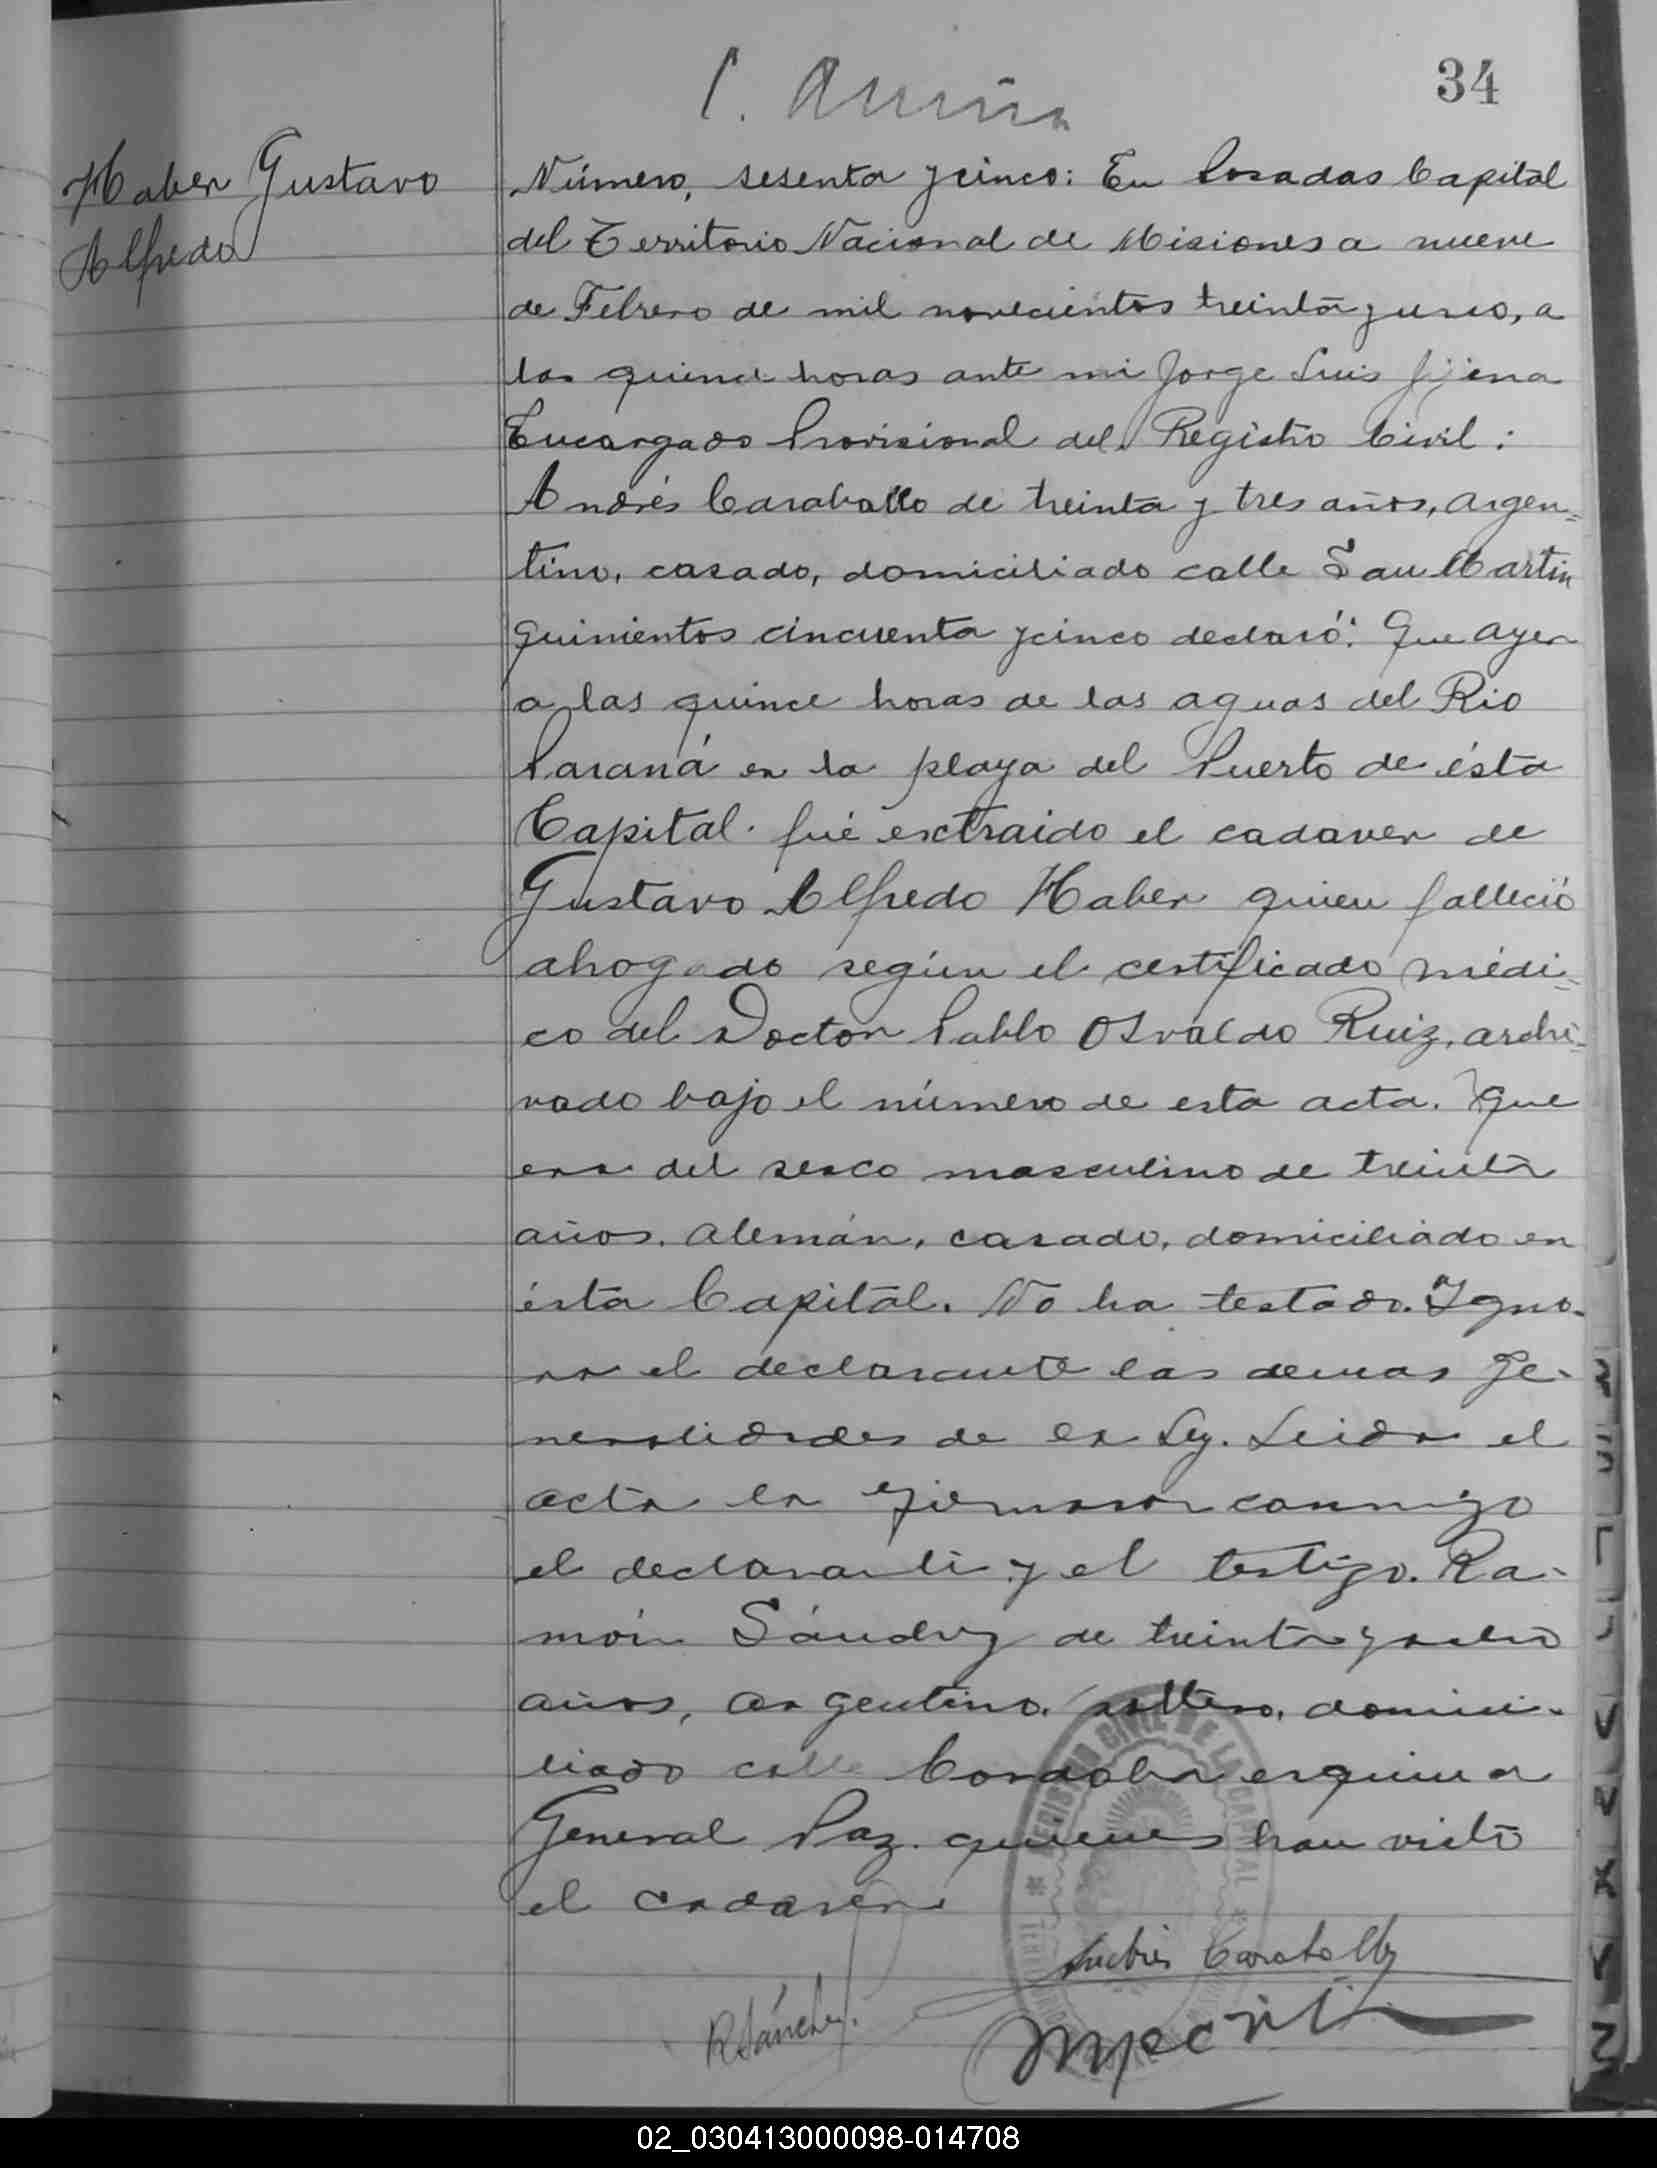 34
Haber Gustavo
Alfredo
Número, sesenta y cinco: En Posadas Capital
del Territorio Nacional de Misiones a nueve
de Febrero de mil novecientos treinta y uno, a
las quince horas ante mi Jorge Luis
Encargado Provisional del Registro Civil:
Andrés Caraballo de treinta y tres años, argen=
tino, casado, domiciliado calle San Martin
quinientos cincuenta y cinco declaró: Que ayer
a las quince horas de las aguas del Rio
Paraná en la playa del Puerto de ésta
Capital fué extraido el cadaver de
Gustavo Alfredo Haber quien falleció
ahogado según el certificado médi=
co del Doctor Pablo Osvaldo Ruiz, archi=
vado bajo el número de esta acta. Que
era del sexo masculino de treinta
años, alemán, casado, domiciliado en
ésta Capital. No ha testado. Igno-
ra el declarante las demas ge-
neralidades de la Ley. Leida el
acta la firmaron conmigo
el declarante y el testigo. Ra-
món Sánchez de treinta y ocho
años, argentino, soltero, domici-
liado calle Cordoba esquina
General Paz. quienes han visto
el cadaver.
REGISTRO CIVIL DE LA CAPITAL
Andrés Caraballo
RSánchez.
02_030413000098-014708